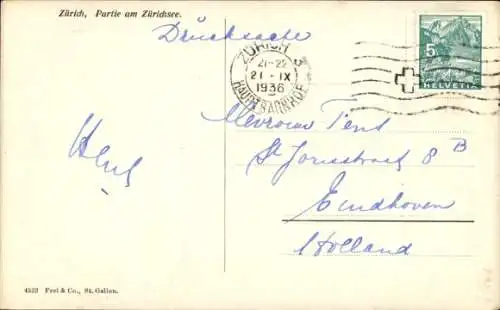 Zürich, Partie am Zürichsee.
Drucksache
ZÜRICH 3
21-22
21 - IX
1936
HAUPTBAHNHOF
5
HELVETIA
Mevrouw Tent
St Jorisstraat 8 B
Eindhoven
Holland
4533 Frei & Co., St. Gallen.